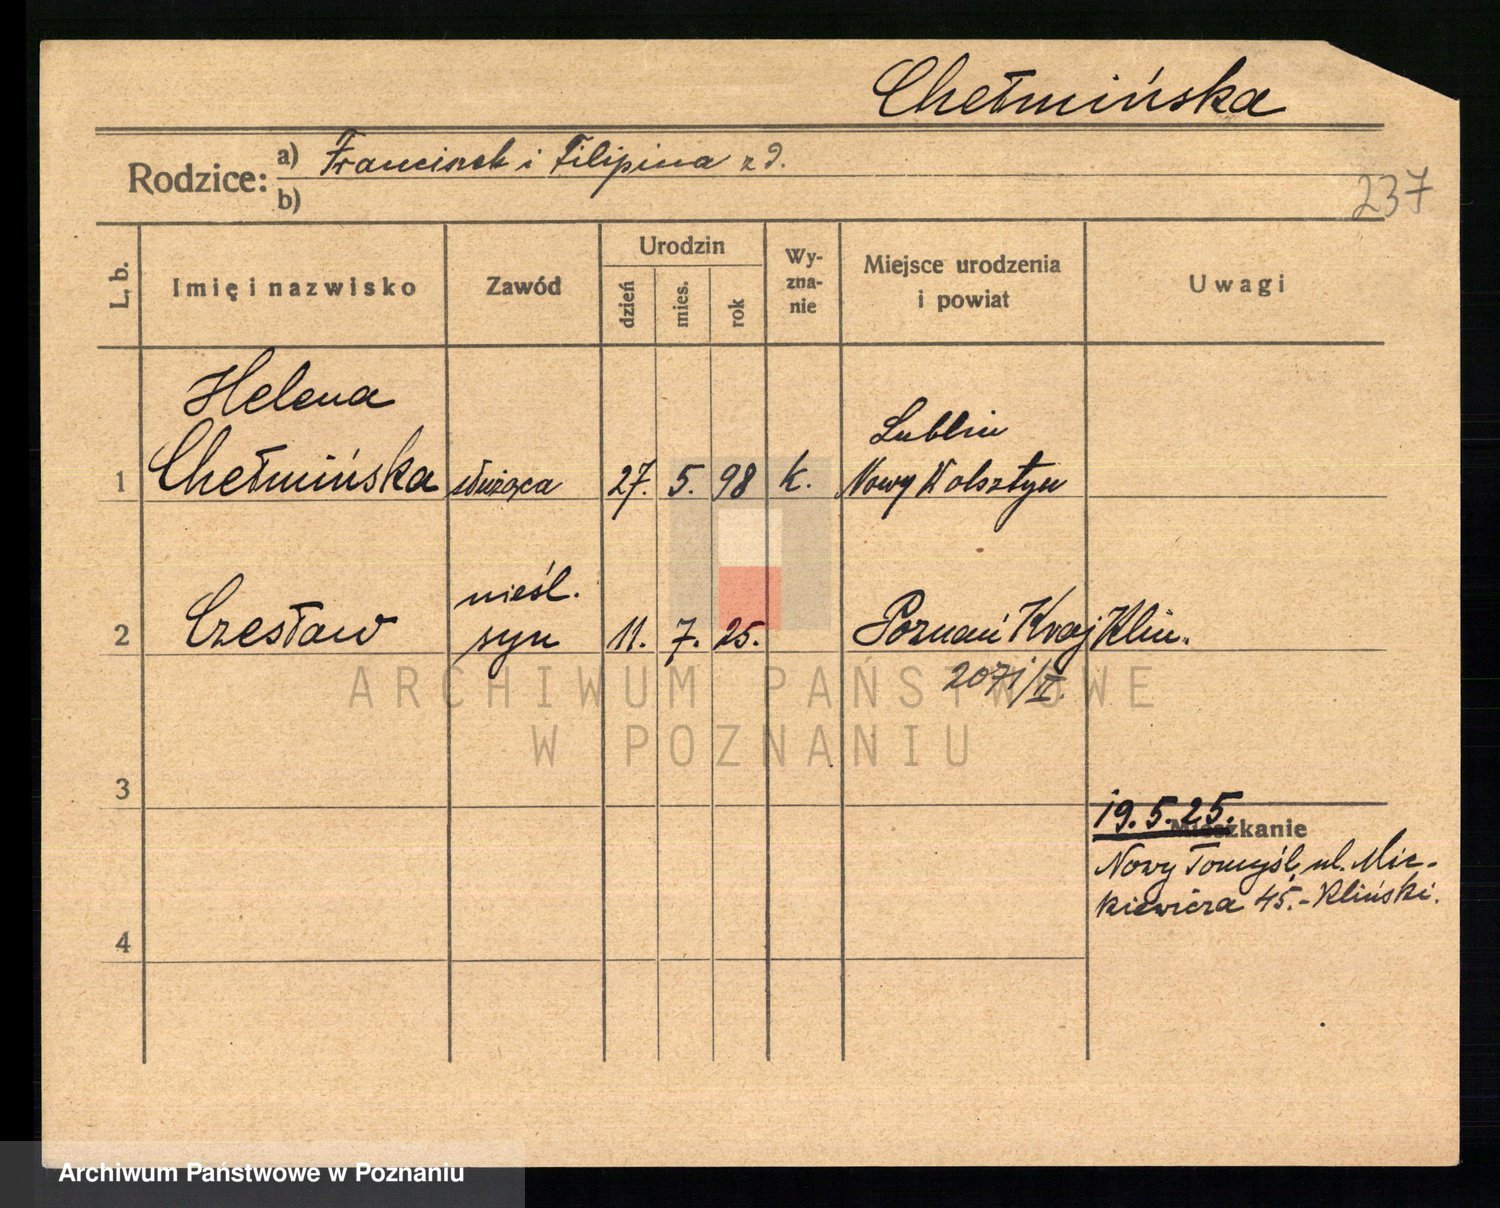 Chełmińska
Rodzice: a) Franciszek i Filipina z d.
b)
237
L. b. Imię i nazwisko Zawód Urodzin dzień mies. rok Wyznanie Miejsce urodzenia i powiat Uwagi
Helena
Chełmińska
1 służąca 27. 5. 98 k. Lublin
Nowy Wolsztyn
nieśl.
2 Czesław syn 11. 7. 25. Poznań Kraj Klin.
2071/II.
3
19.5.25.
Mieszkanie
Nowy Tomyśl, ul. Mic-
kiewicza 45.- Kliński.
4
ARCHIWUM PAŃSTWOWE
W POZNANIU
Archiwum Państwowe w Poznaniu